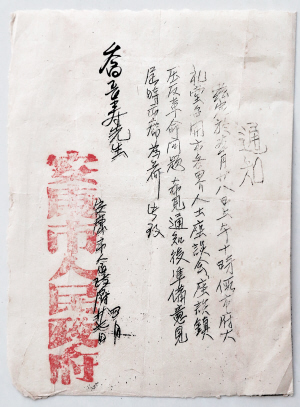 通知
茲定於本月廿八日上午十時假市府大
礼堂召開市各界人士座談会座談鎮
压反革命問題希見通知後準備意見
屆時出席為荷 此致
喬吾寿先生
安康市人民政府 四月廿七日
安康市人民政府